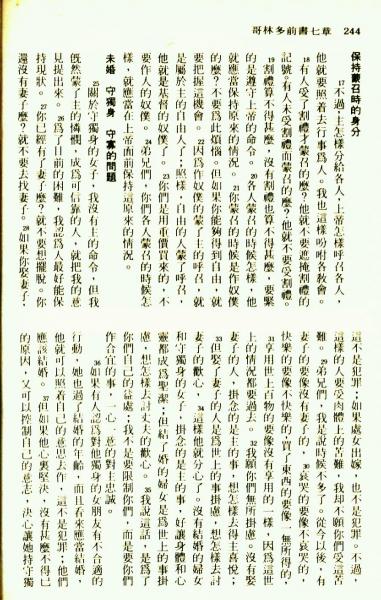 244　哥林多前書七章
保持蒙召時的身分
17不過，主怎樣分給各人，上帝怎樣呼召各人，
他就要照着去行事爲人。我也這樣吩咐各教會。
18有人受了割禮才蒙召的麼？他就不要遮掩割禮的
記號。有人未受割禮而蒙召的麼？他就不要受割禮。
19割禮算不得甚麼，沒有割禮也算不得甚麼，要緊
的是遵守上帝的命令。20各人蒙召的時候怎樣，他
就應當保持原來的情况。21你蒙召的時候是作奴僕
的麼？不要爲此煩惱。但如果你能够得到自由，就
要把握這機會。22因爲作奴僕的蒙了主的呼召，就
是屬於主的自由人了；照樣，自由的人蒙了呼召，
他就是基督的奴僕了。23你們是用重價買來的，不
要作人的奴僕。24弟兄們，你們各人蒙召的時候怎
樣，就應當在上帝面前保持這原來的情况。
未婚　守獨身　守寡的問題
25關於守獨身的女子，我沒有主的命令，但我
旣然蒙了主的憐憫，成爲可信靠的人，就把我的意
見提出來。26爲了目前的困難，我認爲人最好能保
持現狀。27你已經有了妻子麼？就不要想擺脫。你
還沒有妻子麼？就不要去找妻子。28如果你娶妻子，
這不是犯罪；如果處女出嫁，也不是犯罪。不過，
這樣的人要受肉體上的苦難，我却不願你們受這苦
難。29弟兄們，我是說時候不多了。從今以後，有
妻子的要像沒有妻子的，30哀哭的要像不哀哭的，
快樂的要像不快樂的，買了東西的要像一無所得的，
31享用世上百物的要像沒有享用的一樣，因爲這世
上的情况都要過去。32我願你們無所掛慮。沒有娶
妻子的人，掛念的是主的事，想怎樣去得主喜悅；
33但娶了妻子的人是爲世上的事掛慮，想怎樣去討
妻子的歡心，34這樣他就分心了。沒有結婚的婦女
和守獨身的女子，掛念的是主的事，好讓身體和心
靈都成爲聖潔；但結了婚的婦女是爲世上的事掛
慮，想怎樣去討丈夫的歡心。35我說這話，是爲了
你們自己的益處；我不是要限制你們，而是要你們
作合宜的事，一心一意的對主忠誠。
36如果有人認爲對他獨身的女朋友有不合適的
行動，她也過了結婚的年齡，而且看來應當結婚，
他就可以照着自己的意思去作，這不是犯罪，他們
應該結婚。37但如果他心裏堅決，沒有甚麼不得已
的原因，又可以控制自己的意志，決心讓她持守獨